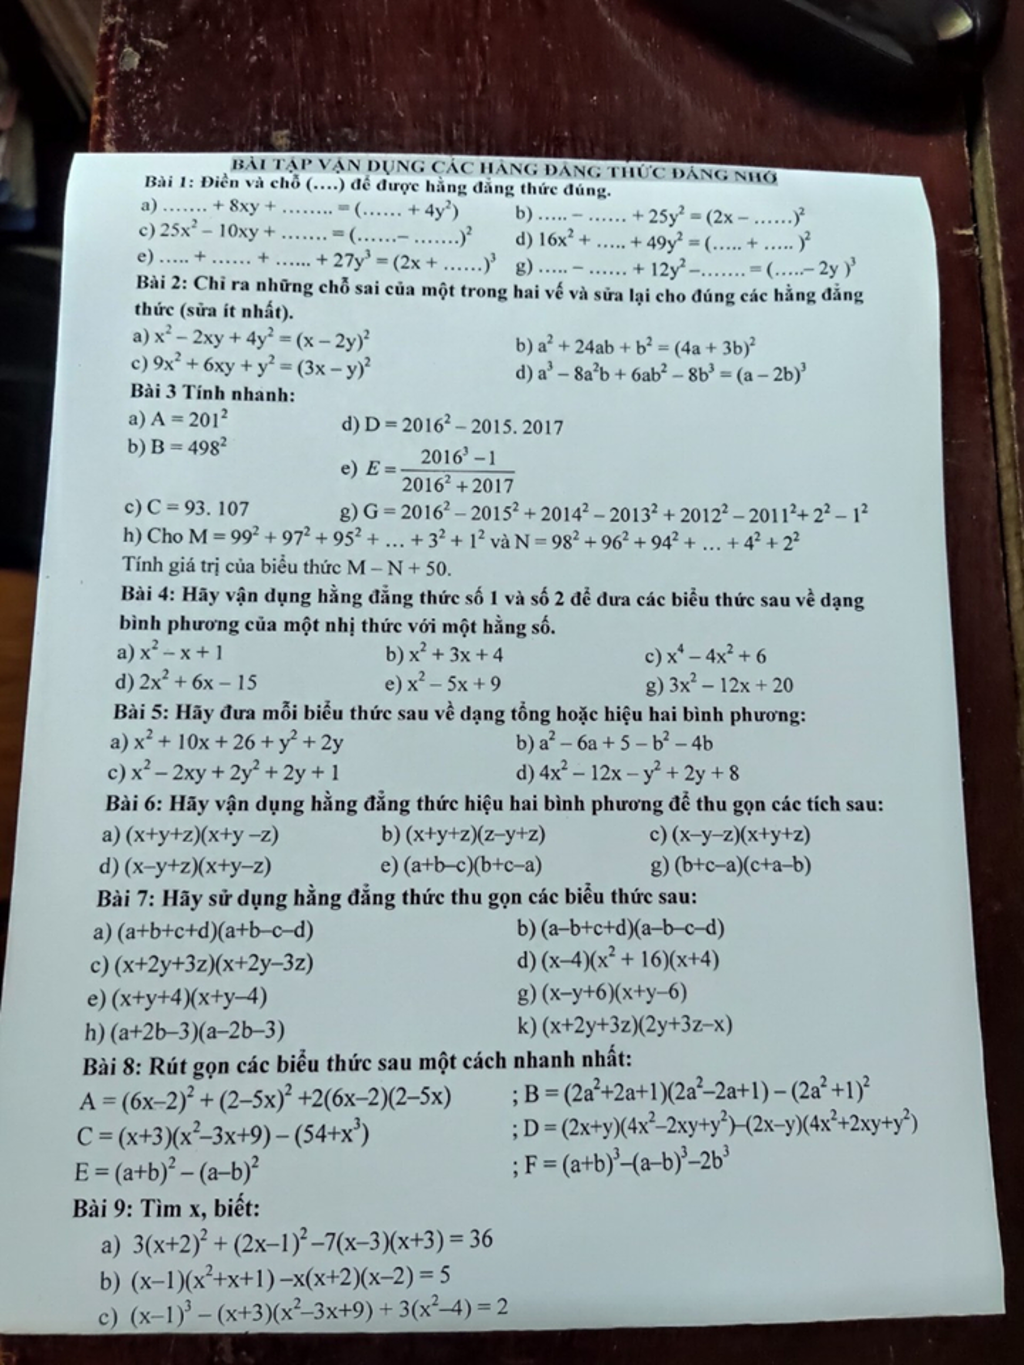 BÀI TẬP VẬN DỤNG CÁC HẰNG ĐẲNG THỨC ĐÁNG NHỚ
Bài 1: Điền và chỗ (....) để được hằng đẳng thức đúng.
a) ....... + 8xy + ........ = (...... + 4y²)
b) ..... – ...... + 25y² = (2x – ......)²
c) 25x² – 10xy + ....... = (......– .......)²
d) 16x² + ..... + 49y² = (..... + ..... )²
e) ..... + ...... + ...... + 27y³ = (2x + ......)³
g) ..... – ...... + 12y²–....... = (.....– 2y )³
Bài 2: Chỉ ra những chỗ sai của một trong hai vế và sửa lại cho đúng các hằng đẳng
thức (sửa ít nhất).
a) x² – 2xy + 4y² = (x – 2y)²
b) a² + 24ab + b² = (4a + 3b)²
c) 9x² + 6xy + y² = (3x – y)²
d) a³ – 8a²b + 6ab² – 8b³ = (a – 2b)³
Bài 3 Tính nhanh:
a) A = 201²
d) D = 2016² – 2015. 2017
b) B = 498²
e) E = (2016³ –1)/(2016² + 2017)
c) C = 93. 107
g) G = 2016² – 2015² + 2014² – 2013² + 2012² – 2011²+ 2² – 1²
h) Cho M = 99² + 97² + 95² + ... + 3² + 1² và N = 98² + 96² + 94² + ... + 4² + 2²
Tính giá trị của biểu thức M – N + 50.
Bài 4: Hãy vận dụng hằng đẳng thức số 1 và số 2 để đưa các biểu thức sau về dạng
bình phương của một nhị thức với một hằng số.
a) x² – x + 1
b) x² + 3x + 4
c) x⁴ – 4x² + 6
d) 2x² + 6x – 15
e) x² – 5x + 9
g) 3x² – 12x + 20
Bài 5: Hãy đưa mỗi biểu thức sau về dạng tổng hoặc hiệu hai bình phương:
a) x² + 10x + 26 + y² + 2y
b) a² – 6a + 5 – b² – 4b
c) x² – 2xy + 2y² + 2y + 1
d) 4x² – 12x – y² + 2y + 8
Bài 6: Hãy vận dụng hằng đẳng thức hiệu hai bình phương để thu gọn các tích sau:
a) (x+y+z)(x+y –z)
b) (x+y+z)(z–y+z)
c) (x–y–z)(x+y+z)
d) (x–y+z)(x+y–z)
e) (a+b–c)(b+c–a)
g) (b+c–a)(c+a–b)
Bài 7: Hãy sử dụng hằng đẳng thức thu gọn các biểu thức sau:
a) (a+b+c+d)(a+b–c–d)
b) (a–b+c+d)(a–b–c–d)
c) (x+2y+3z)(x+2y–3z)
d) (x–4)(x² + 16)(x+4)
e) (x+y+4)(x+y–4)
g) (x–y+6)(x+y–6)
h) (a+2b–3)(a–2b–3)
k) (x+2y+3z)(2y+3z–x)
Bài 8: Rút gọn các biểu thức sau một cách nhanh nhất:
A = (6x–2)² + (2–5x)² +2(6x–2)(2–5x)
; B = (2a²+2a+1)(2a²–2a+1) – (2a² +1)²
C = (x+3)(x²–3x+9) – (54+x³)
; D = (2x+y)(4x²–2xy+y²)–(2x–y)(4x²+2xy+y²)
E = (a+b)² – (a–b)²
; F = (a+b)³–(a–b)³–2b³
Bài 9: Tìm x, biết:
a) 3(x+2)² + (2x–1)² –7(x–3)(x+3) = 36
b) (x–1)(x²+x+1) –x(x+2)(x–2) = 5
c) (x–1)³ – (x+3)(x²–3x+9) + 3(x²–4) = 2